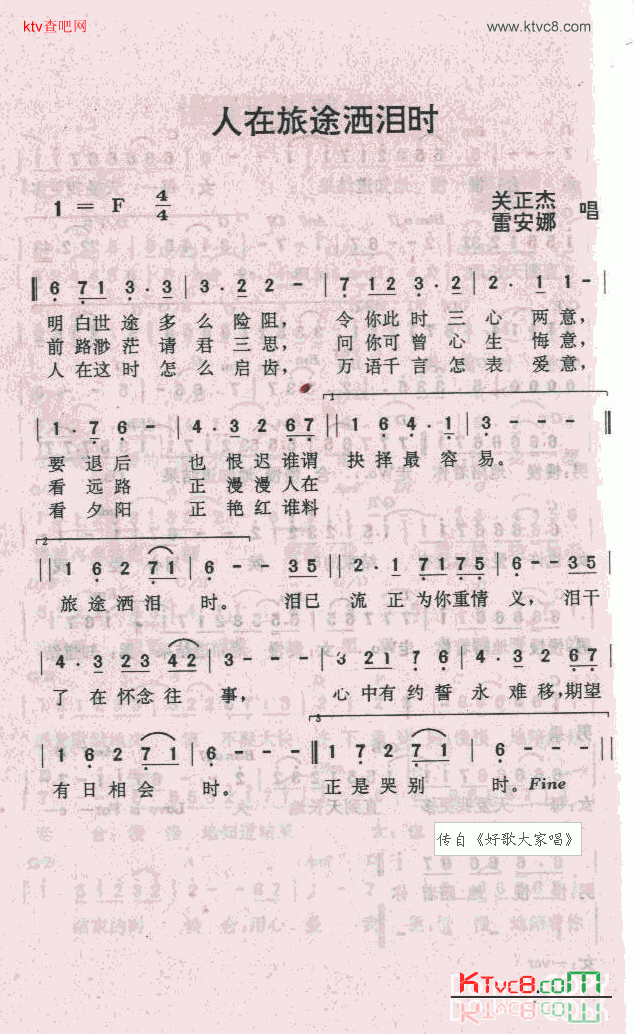 ktv查吧网
www.ktvc8.com
人在旅途洒泪时
1 = F 4/4
关正杰
雷安娜 唱
‖ 6 7 1 3·3 | 3·2 2 - | 7 1 2 3·2 | 2·1 1 - |
明白世途多么险阻， 令你此时三心两意，
前路渺茫请君三思， 问你可曾心生悔意，
人在这时怎么启齿， 万语千言怎表爱意，
1
| 1·7 6 - | 4·3 2 6 7 | 1 6 4·1 | 3 - - - ‖
要退后 也恨迟谁谓 抉择最容易。
看远路 正漫漫人在
看夕阳 正艳红谁料
2
‖ 1 6 2 7 1 | 6 - - 3 5 | 2·1 7 1 7 5 | 6 - - 3 5 |
旅途洒泪 时。 泪已 流正为你重情义，泪干
| 4·3 2 3 4 2 | 3 - - - | 3 2 1 7 6 | 4·3 2 6 7 |
了在怀念往事， 心中有约誓永难移，期望
3
| 1 6 2 7 1 | 6 - - - ‖ 1 7 2 7 1 | 6 - - - ‖
有日相会 时。 正是哭别 时。Fine
传自《好歌大家唱》
KTvc8.com